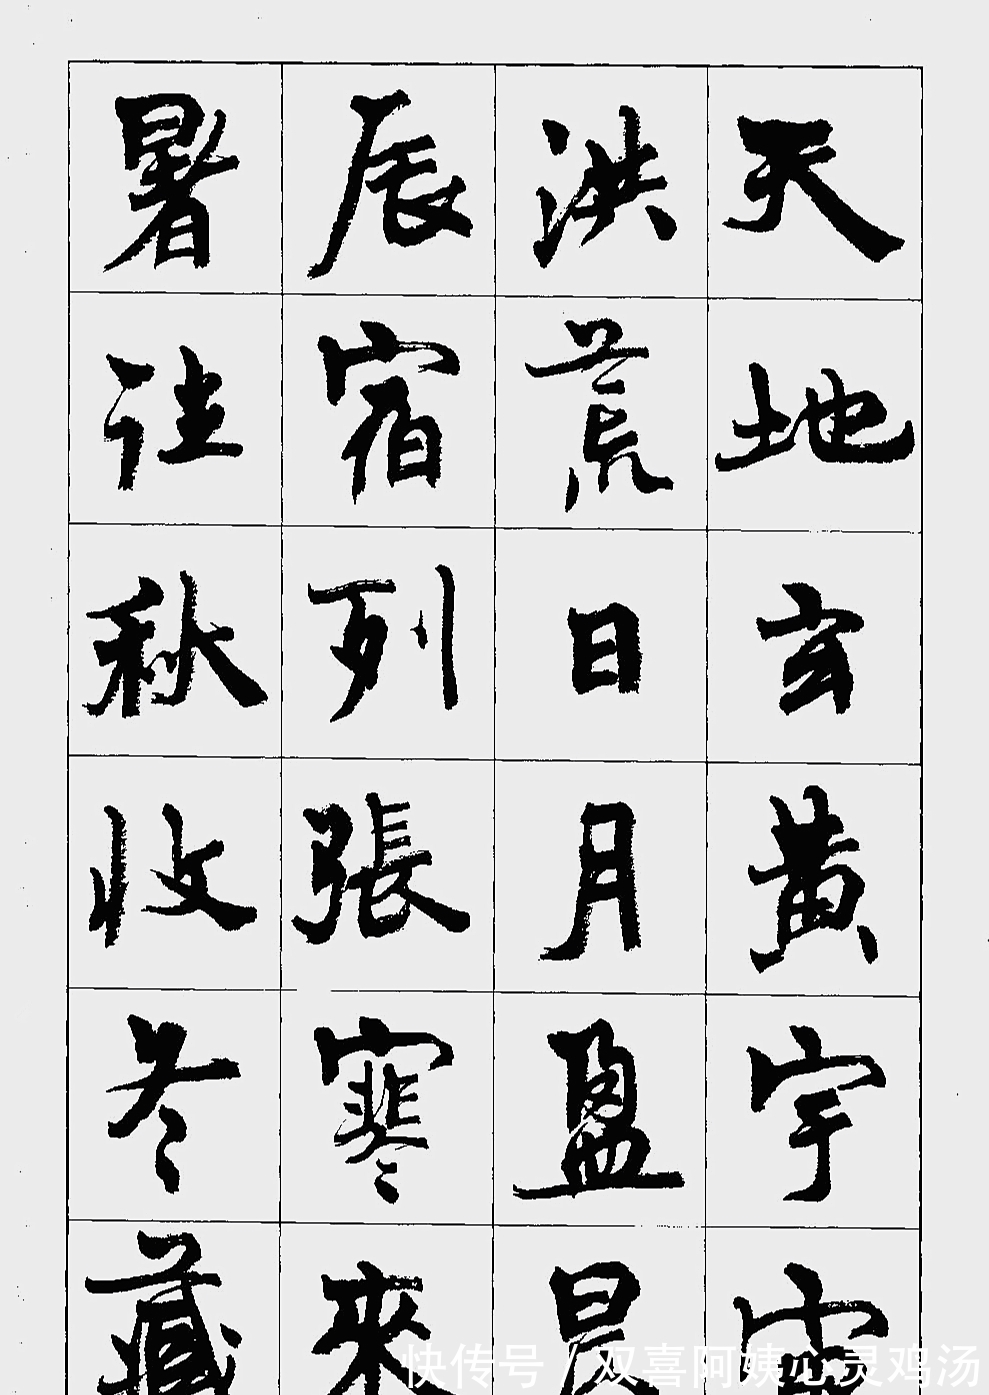 天地玄黄宇宙
洪荒日月盈昃
辰宿列張寒來
暑往秋收冬藏
快传号 / 双喜阿姨心灵鸡汤